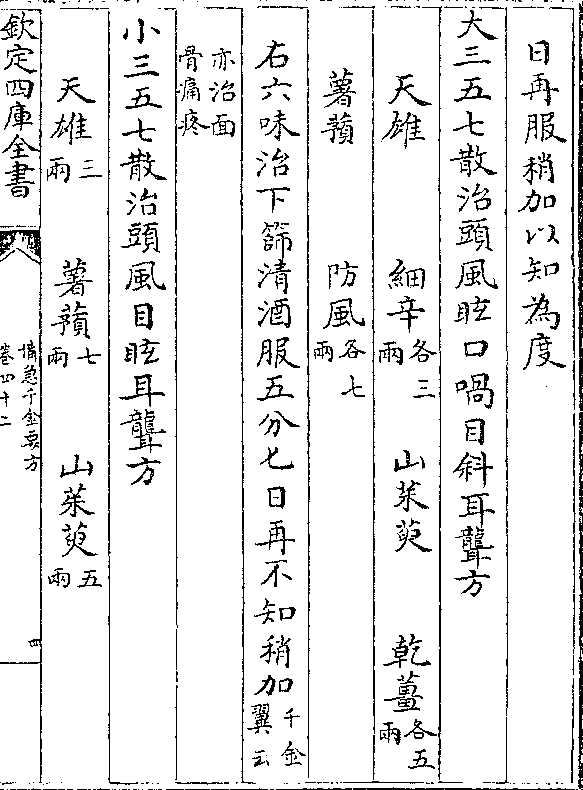 日再服稍加以知為度
大三五七散治頭風眩口喎目斜耳聾方
天雄　細辛各三兩　山茱萸　乾薑各五兩
薯蕷　防風各七兩
右六味治下篩清酒服五分匕日再不知稍加千金翼云
亦治面骨痛疼
小三五七散治頭風目眩耳聾方
天雄三兩　薯蕷七兩　山茱萸五兩
欽定四庫全書
備急千金要方
卷四十二
四